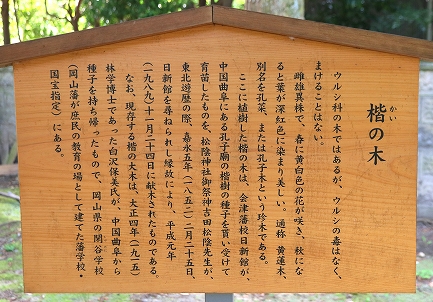 楷の木
かい
ウルシ科の木ではあるが、ウルシの毒はなく、
まけることはない。
雌雄異株で、春に黄白色の花が咲き、秋にな
ると葉が深紅色に染まり美しい。通称 黄蓮木、
別名を孔菜、または孔子木という珍木である。
ここに植樹した楷の木は、会津藩校日新館が、
中国曲阜にある孔子廟の楷樹の種子を買い受けて
育苗したものを、松陰神社御祭神吉田松陰先生が、
東北遊歴の際、嘉永五年(一八五二)二月二十五日、
日新館を尋ねられし縁故により、平成元年
(一九八九)十一月二十四日に献木されたものである。
なお、現存する楷の大木は、大正四年(一九一五)
林学博士であった白沢保美氏が、中国曲阜から
種子を持ち帰ったもので、岡山県の閑谷学校
(岡山藩が庶民の教育の場として建てた藩学校・
国宝指定)にある。